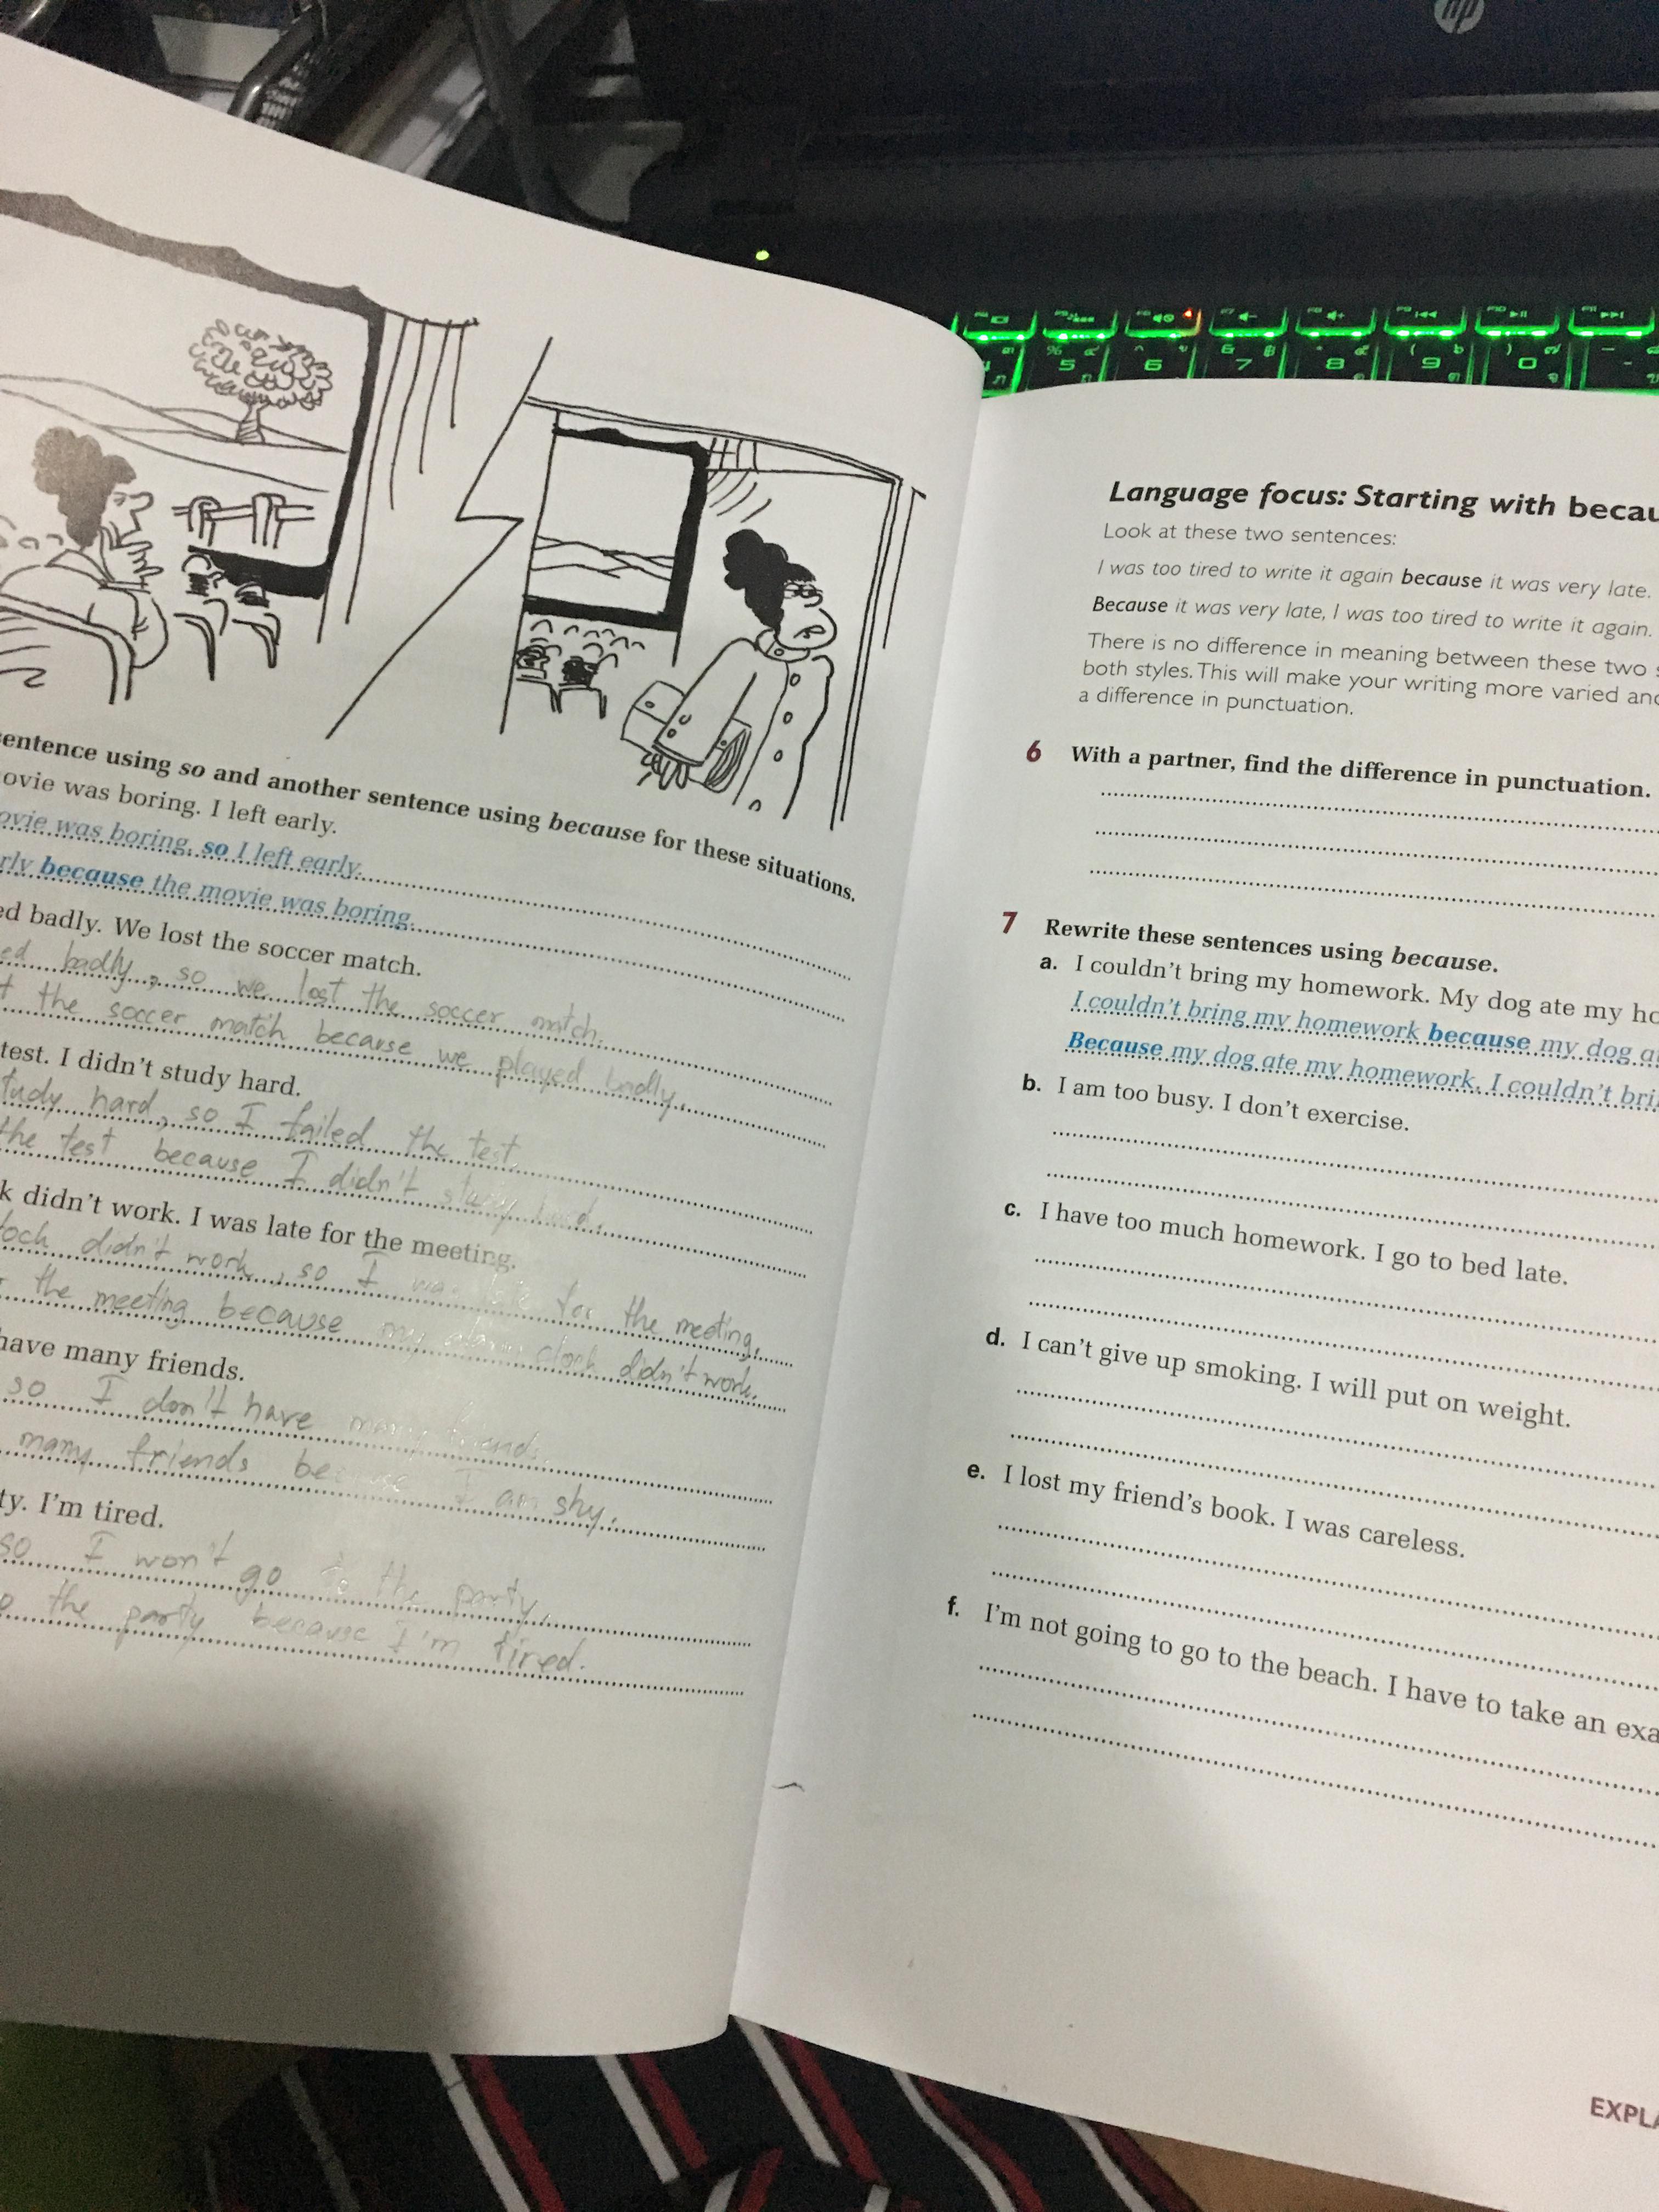 hp
5
6
7
8
9
0
sentence using so and another sentence using because for these situations.
ovie was boring. I left early.
ovie was boring, so I left early.
rly because the movie was boring.
ed badly. We lost the soccer match.
ed badly, so we lost the soccer match.
t the soccer match because we played badly.
test. I didn't study hard.
tudy hard, so I failed the test.
the test because I didn't study hard.
k didn't work. I was late for the meeting.
lock didn't work, so I was late for the meeting.
r the meeting because my alarm clock didn't work.
have many friends.
so I don't have many friends.
many friends because I am shy.
ty. I'm tired.
so I won't go to the party.
o the party because I'm tired.
Language focus: Starting with becau
Look at these two sentences:
I was too tired to write it again because it was very late.
Because it was very late, I was too tired to write it again.
There is no difference in meaning between these two s
both styles. This will make your writing more varied and
a difference in punctuation.
6 With a partner, find the difference in punctuation.
7 Rewrite these sentences using because.
a. I couldn't bring my homework. My dog ate my ho
I couldn't bring my homework because my dog at
Because my dog ate my homework, I couldn't bri
b. I am too busy. I don't exercise.
c. I have too much homework. I go to bed late.
d. I can't give up smoking. I will put on weight.
e. I lost my friend's book. I was careless.
f. I'm not going to go to the beach. I have to take an exa
EXPLA